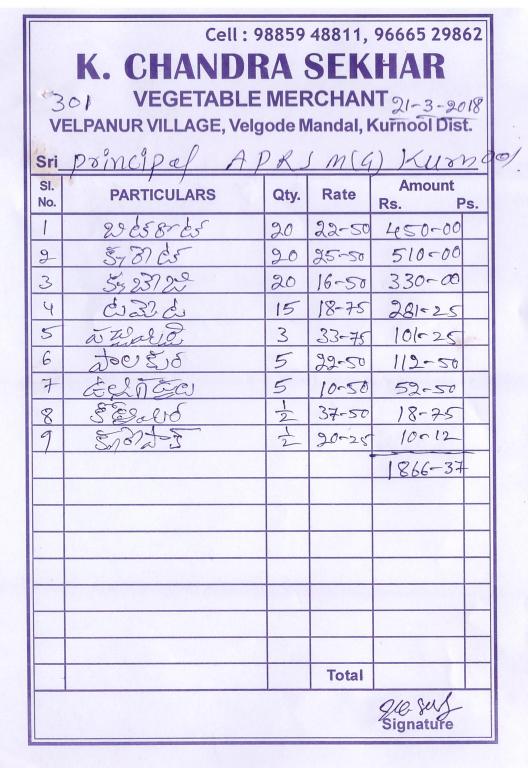 Cell : 98859 48811, 96665 29862
K. CHANDRA SEKHAR
301 VEGETABLE MERCHANT 21-3-2018
VELPANUR VILLAGE, Velgode Mandal, Kurnool Dist.
Sri principal APRS m(G) Kurnool
Sl. No. PARTICULARS Qty. Rate Amount Rs. Ps.
1 బిట్రూట్ 20 22-50 450-00
2 క్యారెట్ 20 25-50 510-00
3 క్యాబేజి 20 16-50 330-00
4 టమేటె 15 18-75 281-25
5 3 33-75 101-25
6 పాలకుర 5 22-50 112-50
7 5 10-50 52-50
8 1/2 37-50 18-75
9 1/2 20-25 10-12
1866-37
Total
Signature